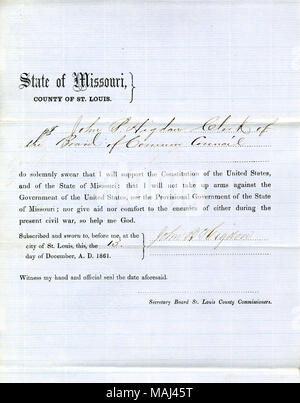 State of Missouri,
COUNTY OF ST. LOUIS.
John P Higdon Clerk of
the Board of Common Council
do solemnly swear that I will support the Constitution of the United States,
and of the State of Missouri; that I will not take up arms against the
Government of the United States, nor the Provisional Government of the
State of Missouri; nor give aid nor comfort to the enemies of either during the
present civil war, so help me God.
Subscribed and sworn to, before me, at the
city of St. Louis, this, the 13
day of December, A. D. 1861.
John P Higdon
Witness my hand and official seal the date aforesaid.
Secretary Board St. Louis County Commissioners.
alamy
Image ID: MAJ45T
www.alamy.com